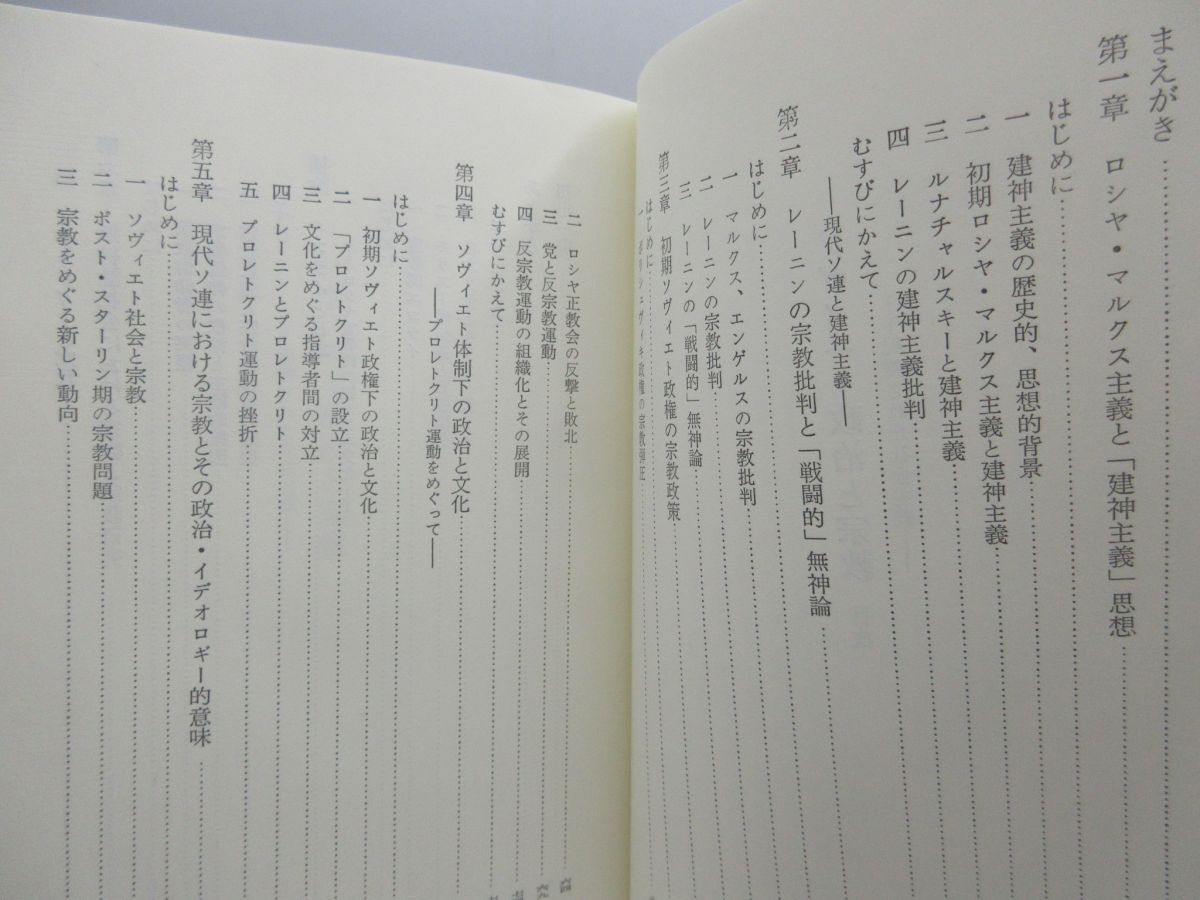 まえがき
第一章　ロシヤ・マルクス主義と「建神主義」思想
はじめに
一　建神主義の歴史的、思想的背景
二　初期ロシヤ・マルクス主義と建神主義
三　ルナチャルスキーと建神主義
四　レーニンの建神主義批判
むすびにかえて
――現代ソ連と建神主義――
第二章　レーニンの宗教批判と「戦闘的」無神論
はじめに
一　マルクス、エンゲルスの宗教批判
二　レーニンの宗教批判
三　レーニンの「戦闘的」無神論
第三章　初期ソヴィエト政権の宗教政策
はじめに
一　ボリシェヴィキ政権の宗教弾圧
二　ロシヤ正教会の反撃と敗北
三　党と反宗教運動
四　反宗教運動の組織化とその展開
むすびにかえて
第四章　ソヴィエト体制下の政治と文化
――プロレトクリト運動をめぐって――
はじめに
一　初期ソヴィエト政権下の政治と文化
二　「プロレトクリト」の設立
三　文化をめぐる指導者間の対立
四　レーニンとプロレトクリト
五　プロレトクリト運動の挫折
第五章　現代ソ連における宗教とその政治・イデオロギー的意味
はじめに
一　ソヴィエト社会と宗教
二　ポスト・スターリン期の宗教問題
三　宗教をめぐる新しい動向